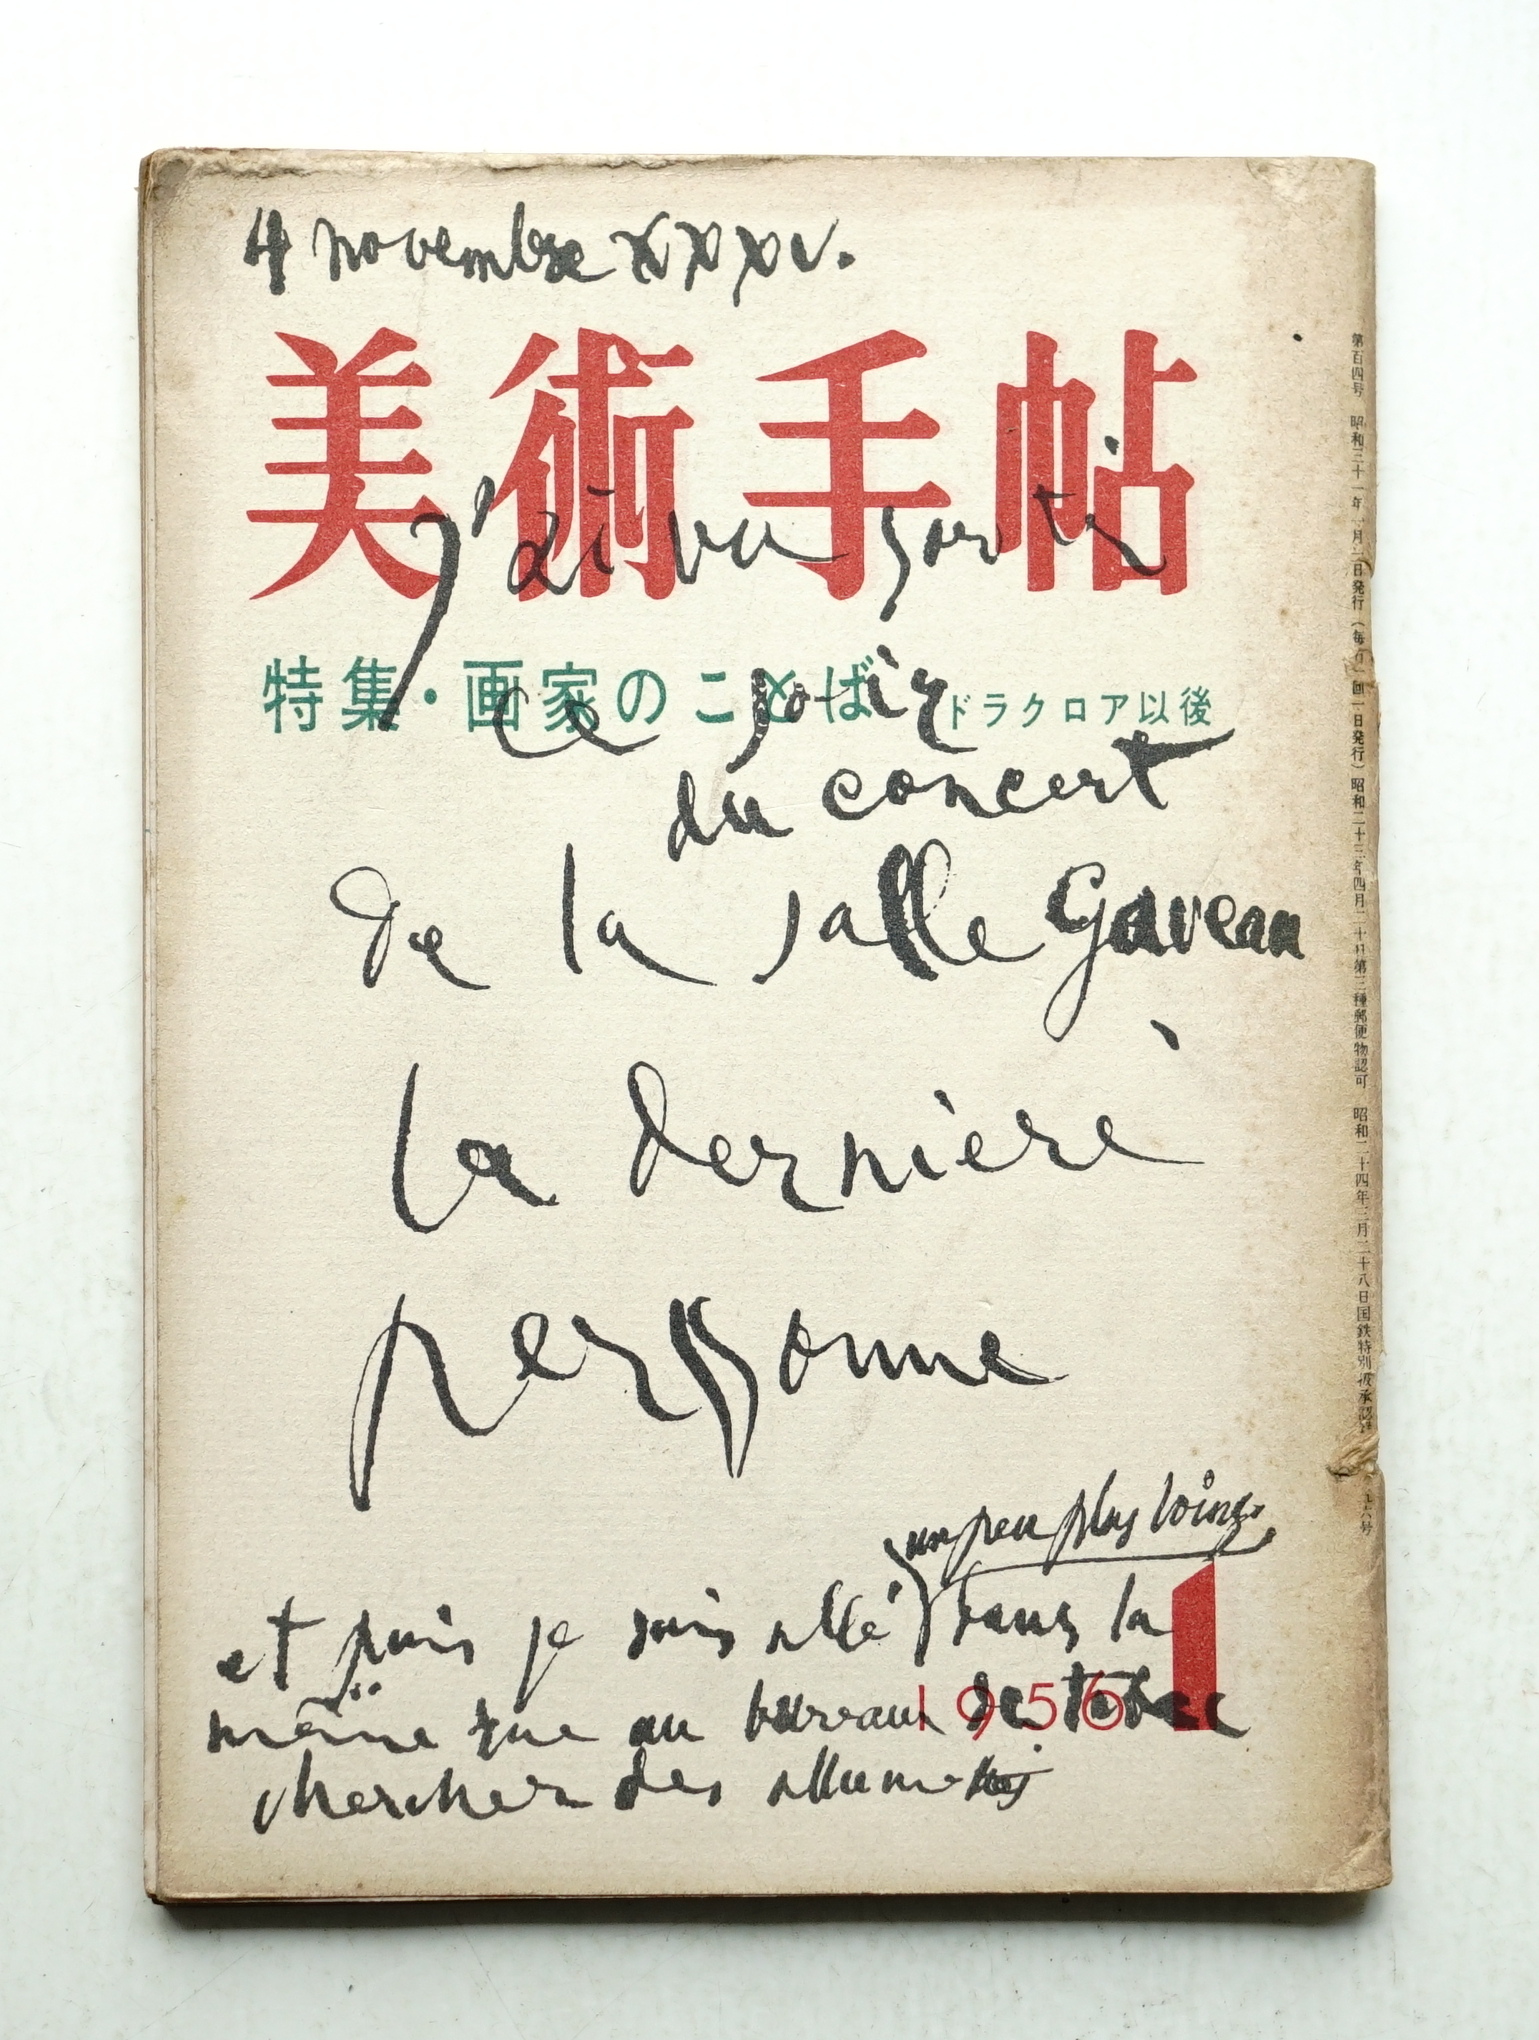 4 novembre XXXV.
美術手帖
j'ai vu sortir
特集・画家のことば ドラクロア以後
ce soir
du concert
de la salle Gaveau
la dernière
personne
un peu plus loin
et puis je suis allé dans la
même rue au bureau de tabac
1956 1
chercher des allumettes
第百四号 昭和三十一年一月一日発行(毎月一回一日発行)昭和二十三年四月二十日第三種郵便物認可 昭和二十四年三月二十八日国鉄特別扱承認